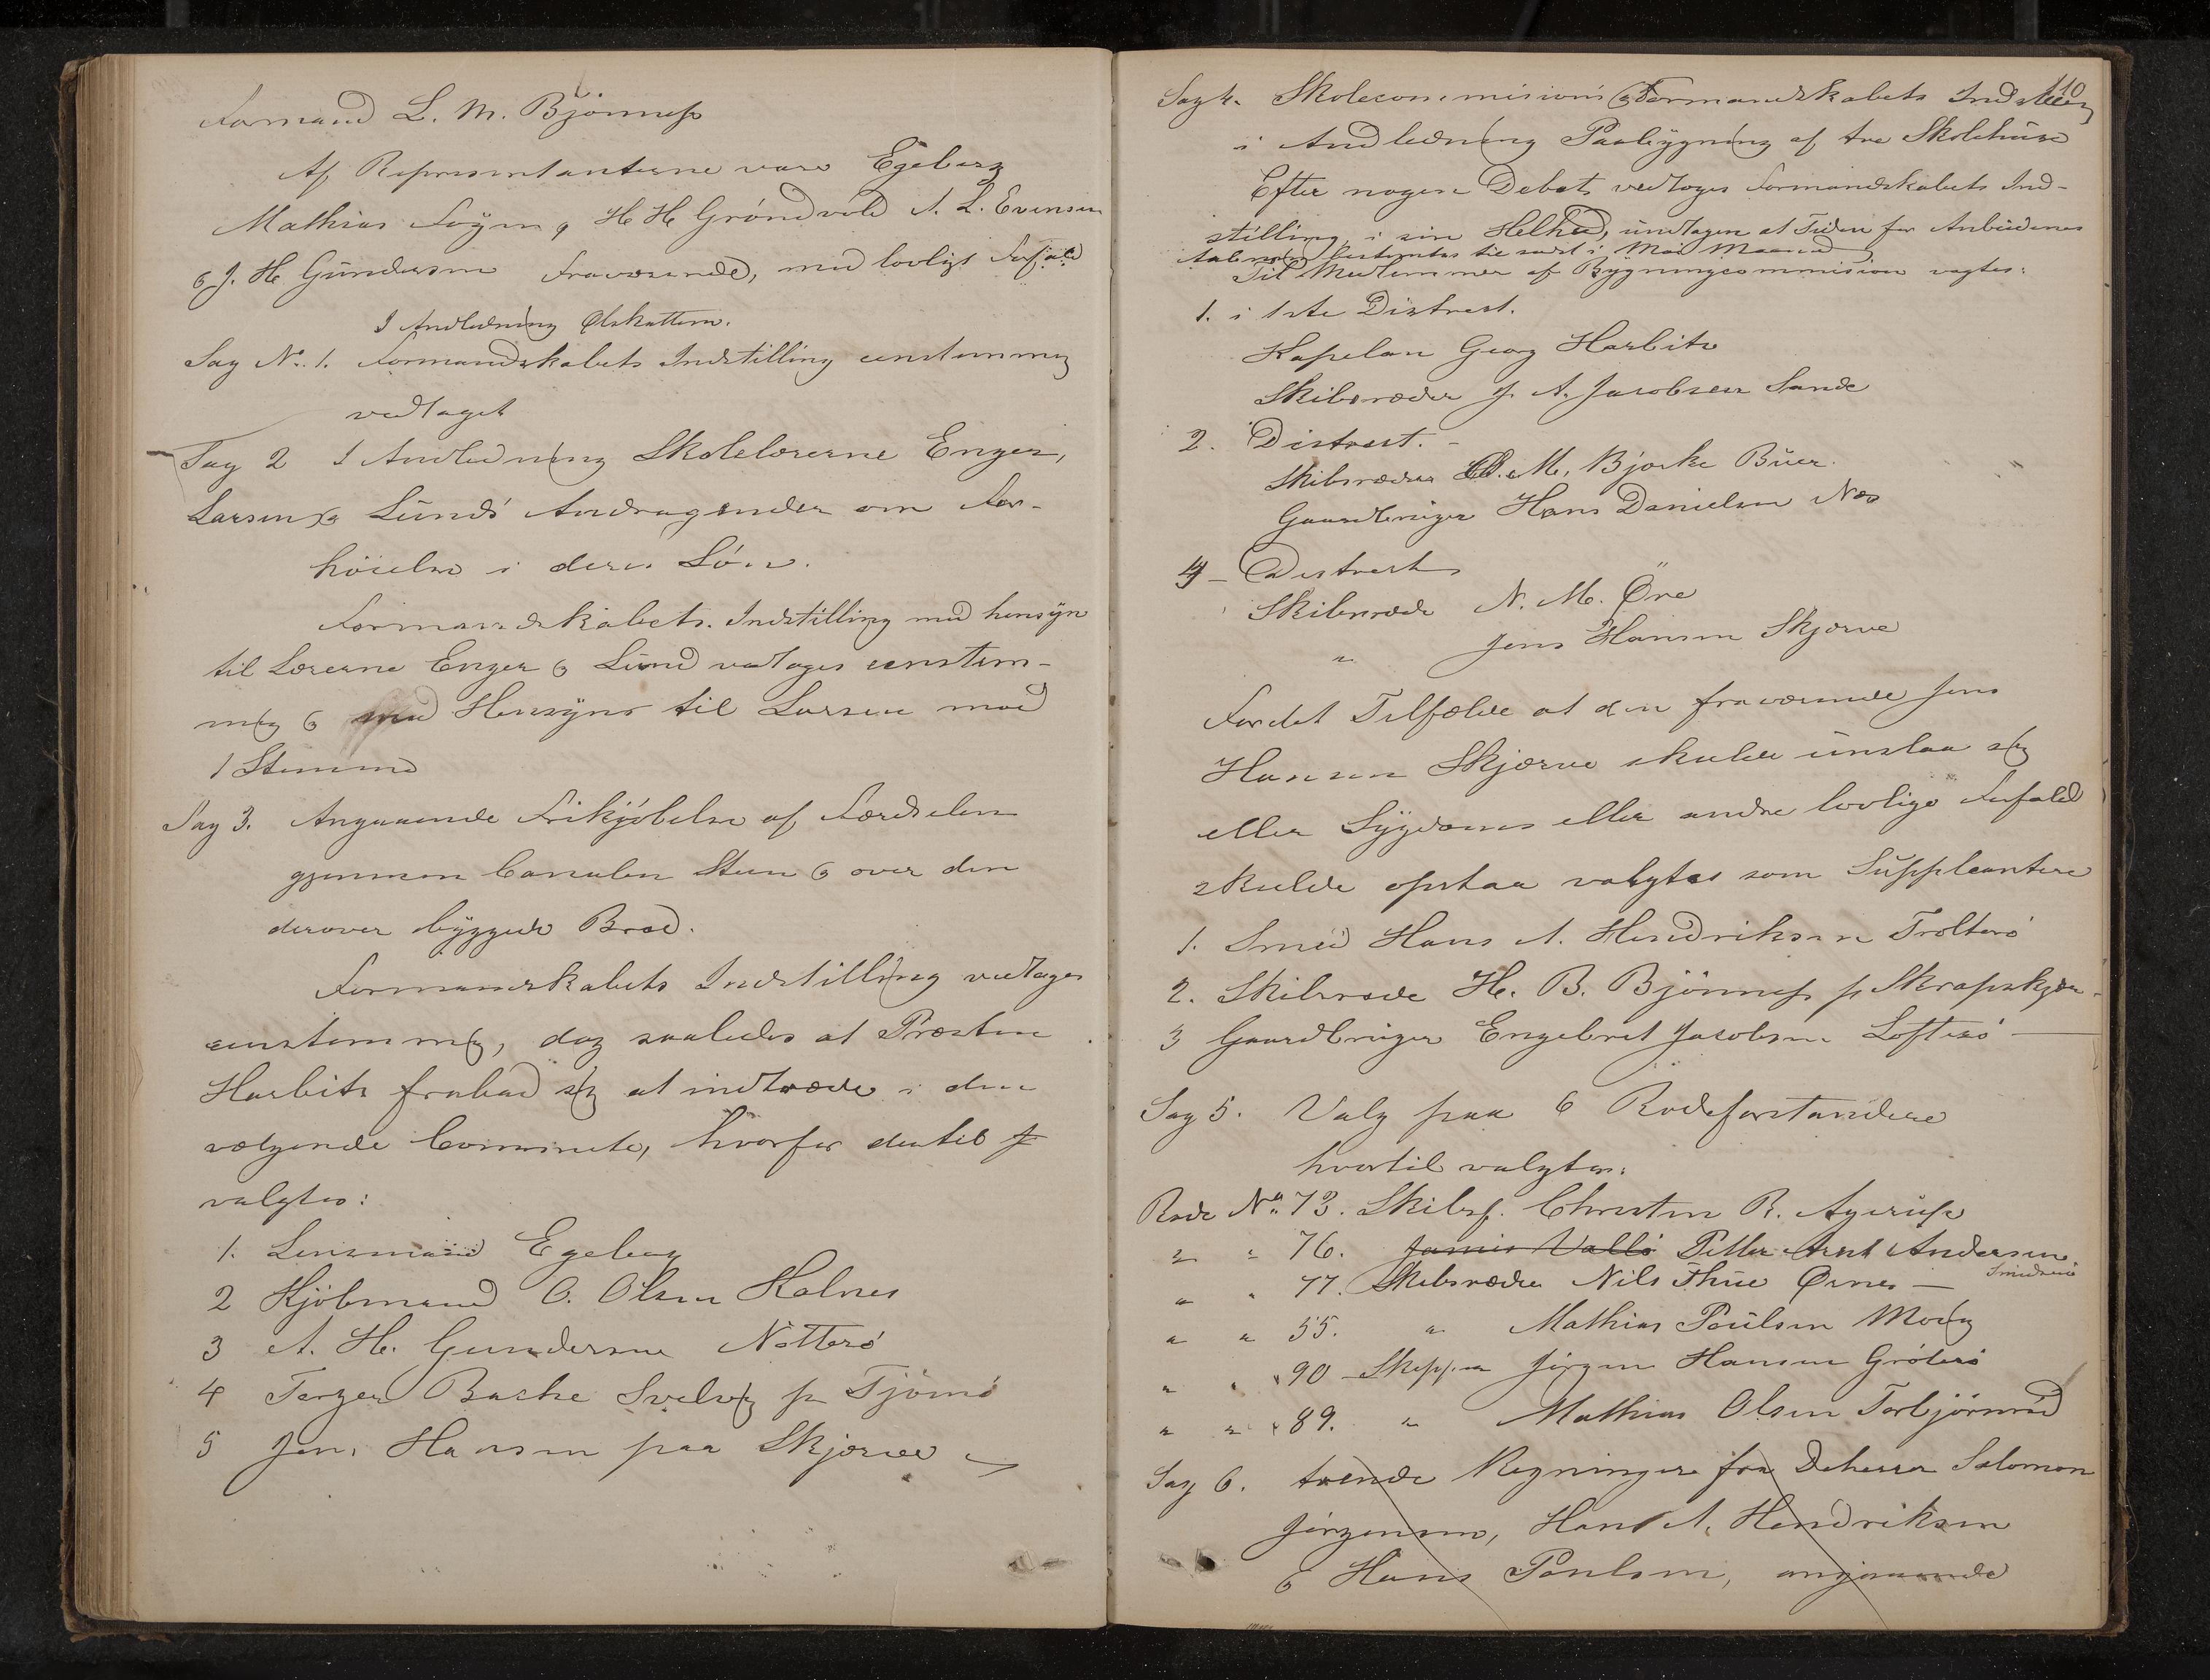 Formand L. M. Bjönness
Af Representanterne vare Egeberg
Mathias Foyn, H H Gröndvold A. L. Evensen
og J. H. Gundersen fraværende, med lovligt Forfald
I Andledning Ølskatten.
Sag No. 1. Formandskabets Indstilling eenstemmig
vedtaget
Sag 2 I Andledning Skolelærerne Enger,
Larsen og Lunds Andragender om For-
höielse i deres Lön.
Formandskabets Indstilling med hensyn
til Lærerne Enger og Lund vedtages eenstem-
mig og med Hensyn til Larsen mod
1 Stemme
Sag 3. Angaaende Frikjöbelse af Færdselen
gjennem Canalen Sten og over den
derover byggede Bro.
Formandskabets Indstilling vedtages
eenstemmig, dog saaledes at Præsten
Harbitz frabad sig at indtræde i den
vælgende Comite, hvorfor dertil
valgtes:
1. Lensmand Egeberg
2 Kjöbmand O. Olsen Halnes
3 A. H. Gundersen Nötterö
4 Terger Bache Svelvig p Tjömö
5 Jens Hansen paa Skjerve
110
Sag 4. Skolecommisions og Formandskabets Indstilling
i Andledning Paabygning af tre Skolehuse
Efter nogen Debat vedtoges Formandskabets Ind-
stilling i sin Helhed, undtagen at Tiden for Anbudenes
bestemtes til sidst i Mai Maaned
Til Medlemmer af Bygningcommision valgtes:
1. i 1ste Distrect.
Kapelan Georg Harbitz
Skibsreder J. A. Jacobsen Sande
2. Distrect. -
Skibsreder M. Bjerke Buer.
Gaardbruger Hans Danielsen Næs
4 - Distrect
Skibsrede N. M. Öre
" Jens Hansen Skjerve
For det Tilfælde at den fraværende Jens
Hansen Skjerve skulde unslaa sig
eller Sygdoms eller andre lovlige Forfald
skulde opstaa valgtes som Suppleantere
1. Smed Hans A. Hendriksen Trolterö
2. Skibsrede H. B. Bjönness p Skrapeskjær
3 Gaardbruger Engebret Jacobsen Lofterö
Sag 5. Valg paa 6 Rodeforstandere
hvortil valgtes:
Rode No. 73. Skibsf. Christen R. Agerup
" " 76. James Vallö Petter Arnt Andersen
Smidsrö
" " 77. Skibsreder Nils Thue Ørnes -
" " 55. " Mathias Poulsen Moug
" " 90 Skipper Jörgen Hansen Gröterö
" " 89. " Mathias Olsen Torbjörnröd
Sag 6. tvende Regninger fra Deherrer Salomon
Jörgensen, Hans A. Hendriksen
og Hans Paulsen, angaaende